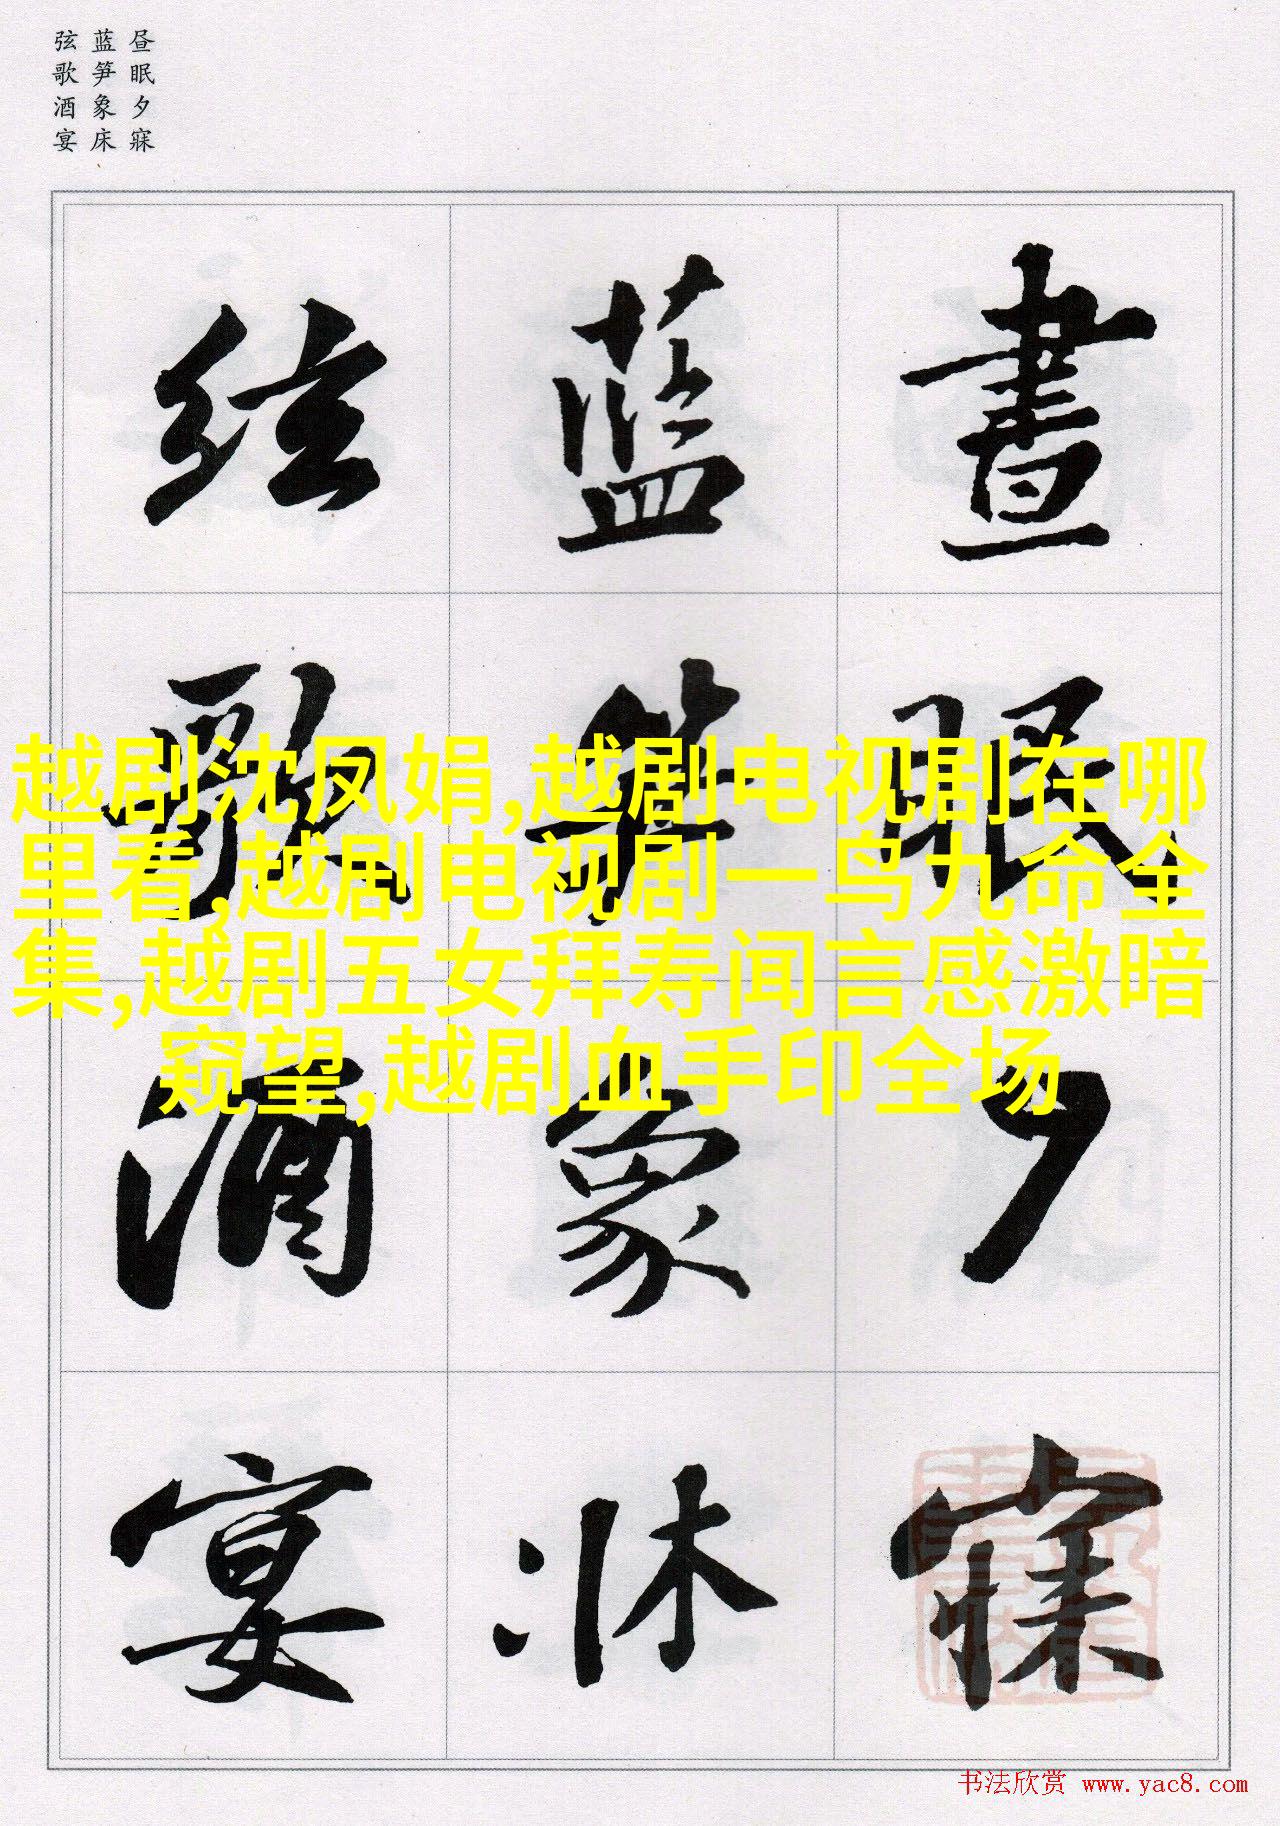 昼眠夕寐
蓝笋象床
弦歌酒宴
晝眠夕寐
藍笋象牀
絃歌酒宴
越剧沈凤娟,越剧电视剧在哪
里看,越剧电视剧一鸟九命全
集,越剧五女拜寿闻言感激暗
窥望,越剧血手印全场
书法欣赏 www.yac8.com